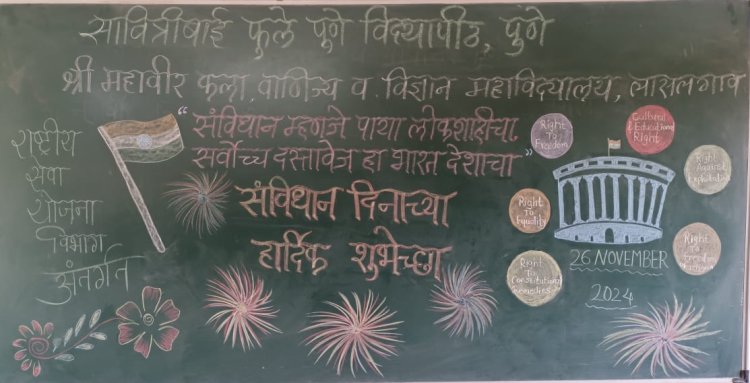 सावित्रीबाई फुले पुणे विद्यापीठ, पुणे
श्री महावीर कला, वाणिज्य व विज्ञान महाविद्यालय, लासलगाव
राष्ट्रीय
सेवा
योजना
विभाग
अंतर्गत
"संविधान म्हणजे पाया लोकशाहीचा,
सर्वोच्च दस्तावेज हा भारत देशाचा"
संविधान दिनाच्या
हार्दिक शुभेच्छा
Right
To
Freedom
Cultural
& Educational
Right
Right
Against
Exploitation
Right
To
Equality
Right
To
Freedom
Right
To
Constitutional
Remedies
26 NOVEMBER
2024